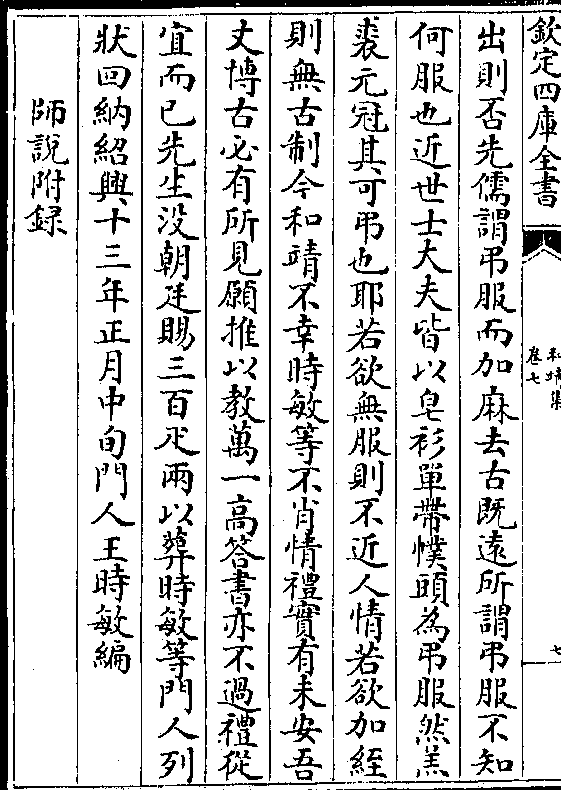 欽定四庫全書
和靖集
卷七
七
出則否先儒謂弔服而加麻去古既遠所謂弔服不知
何服也近世士大夫皆以皂衫單帶幞頭為弔服然羔
裘元冠其可弔也耶若欲無服則不近人情若欲加絰
則無古制今和靖不幸時敏等不肖情禮實有未安吾
丈博古必有所見願推以教萬一高答書亦不過禮從
宜而已先生没朝廷賜三百疋兩以葬時敏等門人列
狀回納紹興十三年正月中旬門人王時敏編
師說附録